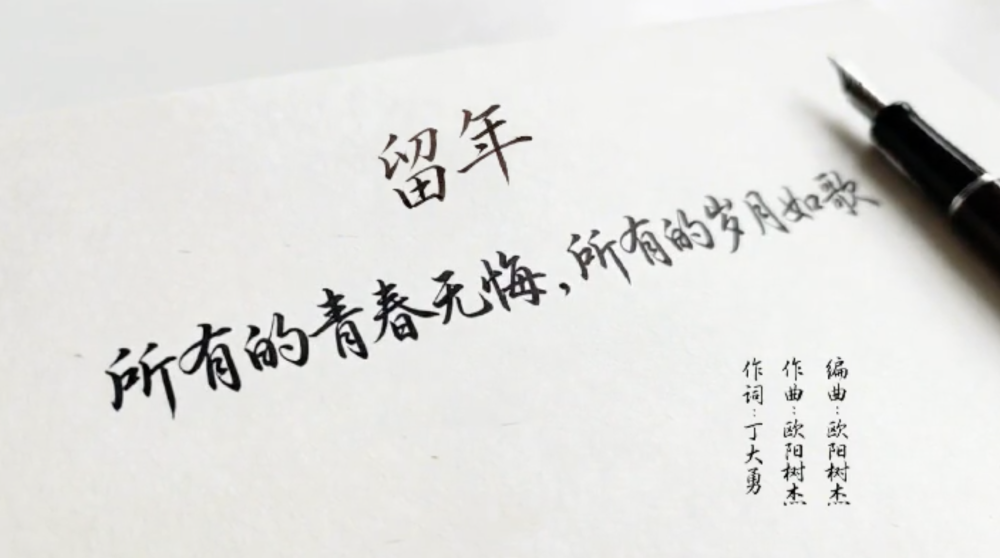 留年
所有的青春无悔,所有的岁月如歌
编曲:欧阳树杰
作曲:欧阳树杰
作词:丁大勇